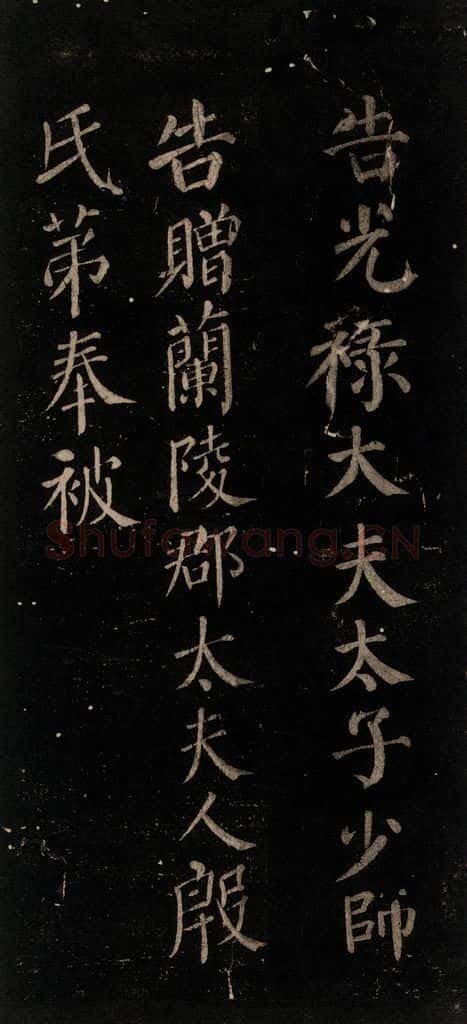 告光祿大夫太子少師
告贈蘭陵郡太夫人殷
氏苐奉被
Shufawang.CN